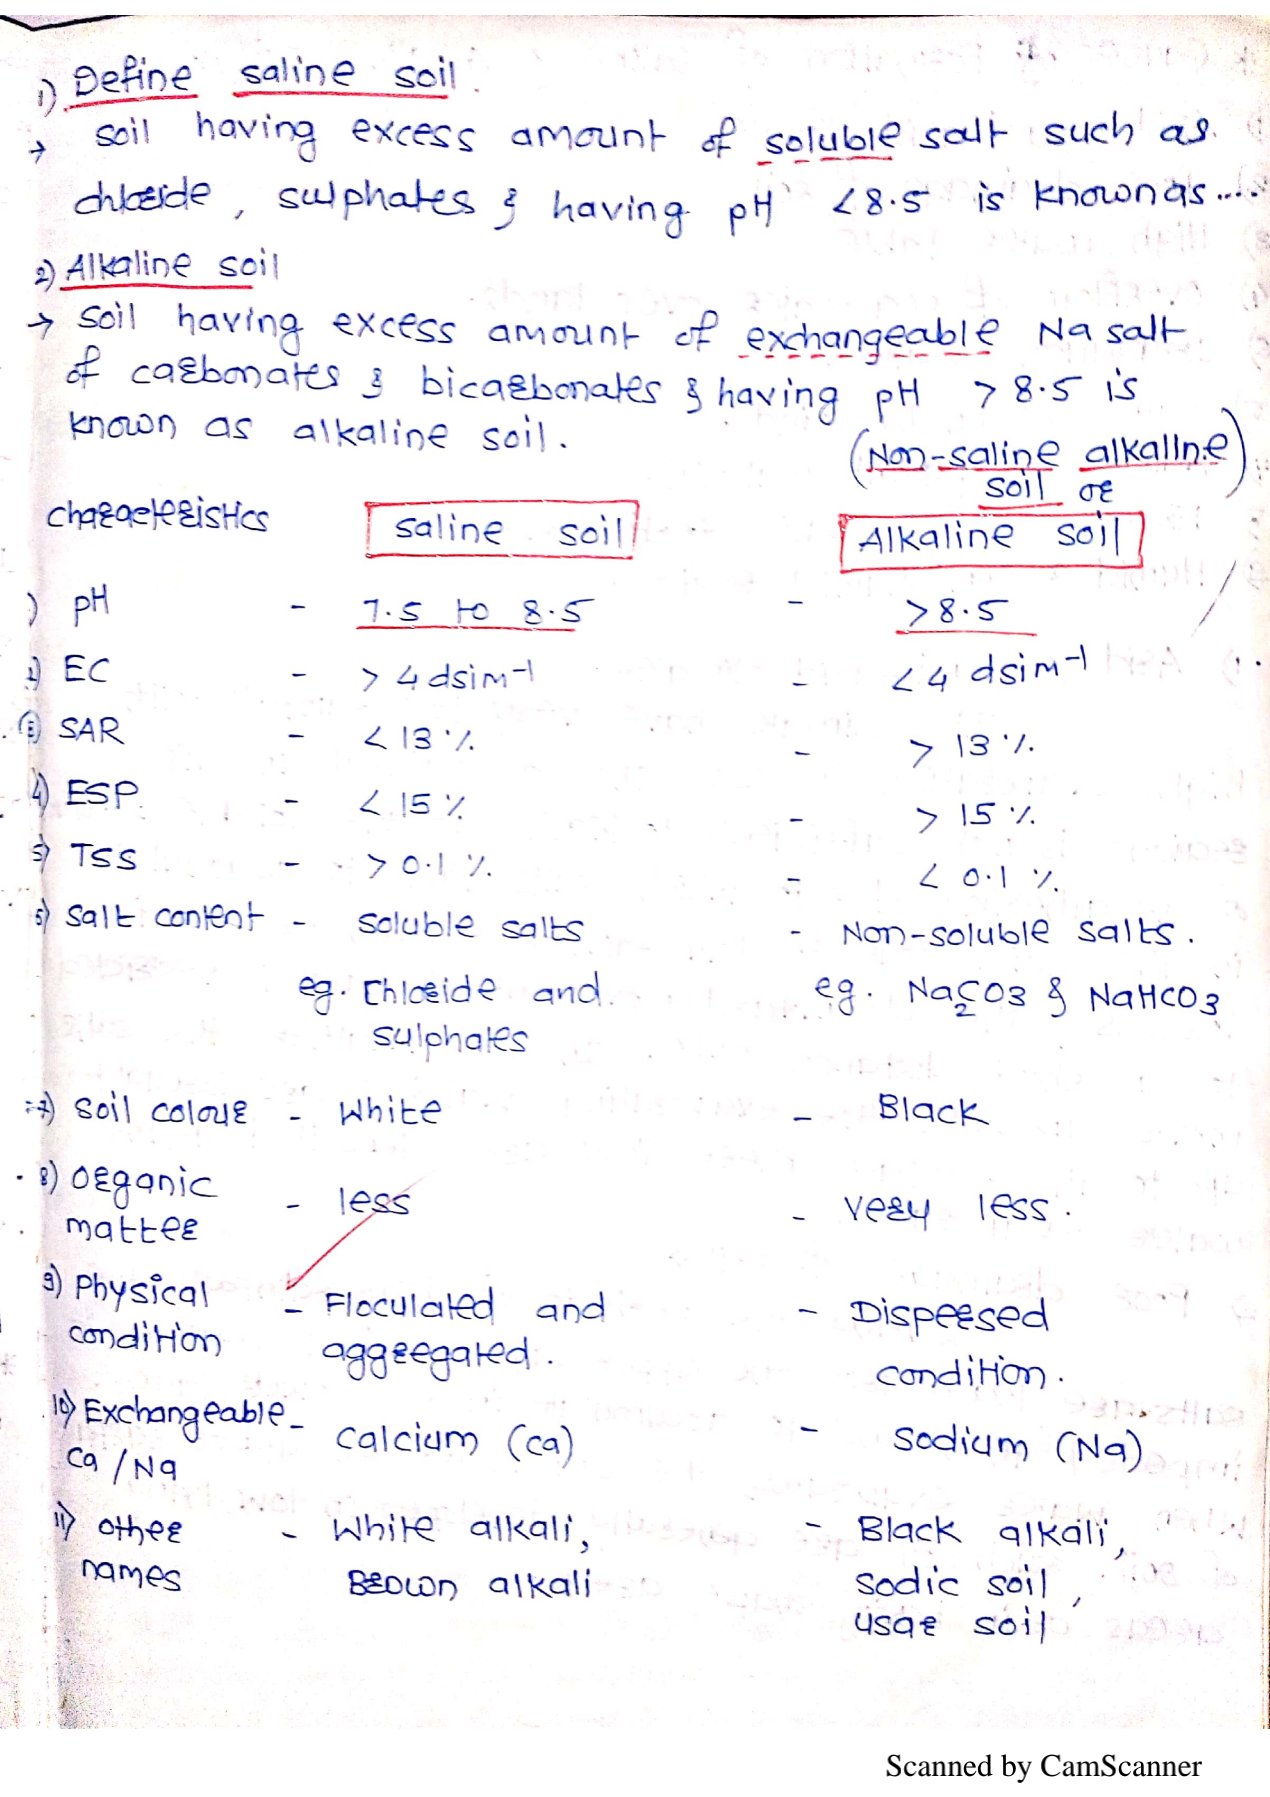 1) Define saline soil.
→ soil having excess amount of soluble salt such as
chloride, sulphates & having pH <8.5 is known as....
2) Alkaline soil
→ soil having excess amount of exchangeable Na salt
of carbonates & bicarbonates & having pH >8.5 is
known as alkaline soil.
(Non-saline alkaline
soil or
characteristics saline soil Alkaline soil)
1) pH - 7.5 to 8.5 - >8.5
2) EC - >4 dsim-1 - <4 dsim-1
3) SAR - <13% - >13%.
4) ESP - <15% - >15%.
5) TSS - >0.1%. - <0.1%.
6) Salt content - soluble salts - Non-soluble salts.
eg. Chloride and eg. Na2CO3 & NaHCO3
sulphates
7) Soil colour - White - Black
8) Organic
matter - less - very less.
9) Physical
condition - Floculated and - Dispersed
aggregated. condition.
10) Exchangeable - Calcium (Ca) - Sodium (Na)
Ca/Na
11) other - White alkali, - Black alkali,
names Brown alkali sodic soil,
usar soil
Scanned by CamScanner